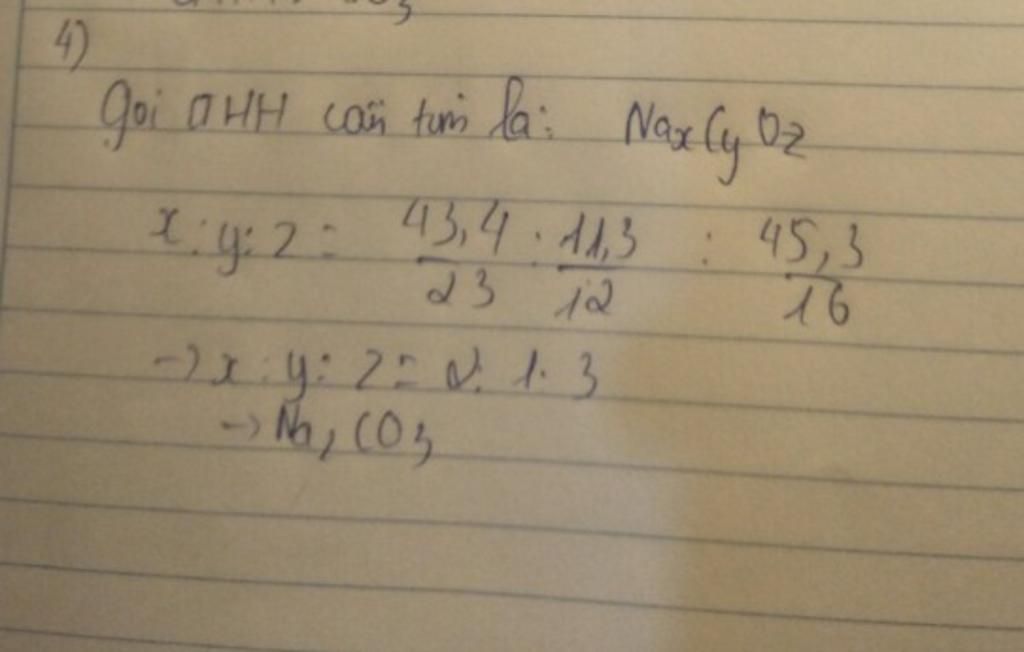 4)
Gọi CTHH cần tìm là: NaxCyOz
x : y : z = 43,4/23 : 11,3/12 : 45,3/16
→ x : y : z = 2 : 1 : 3
→ Na2CO3